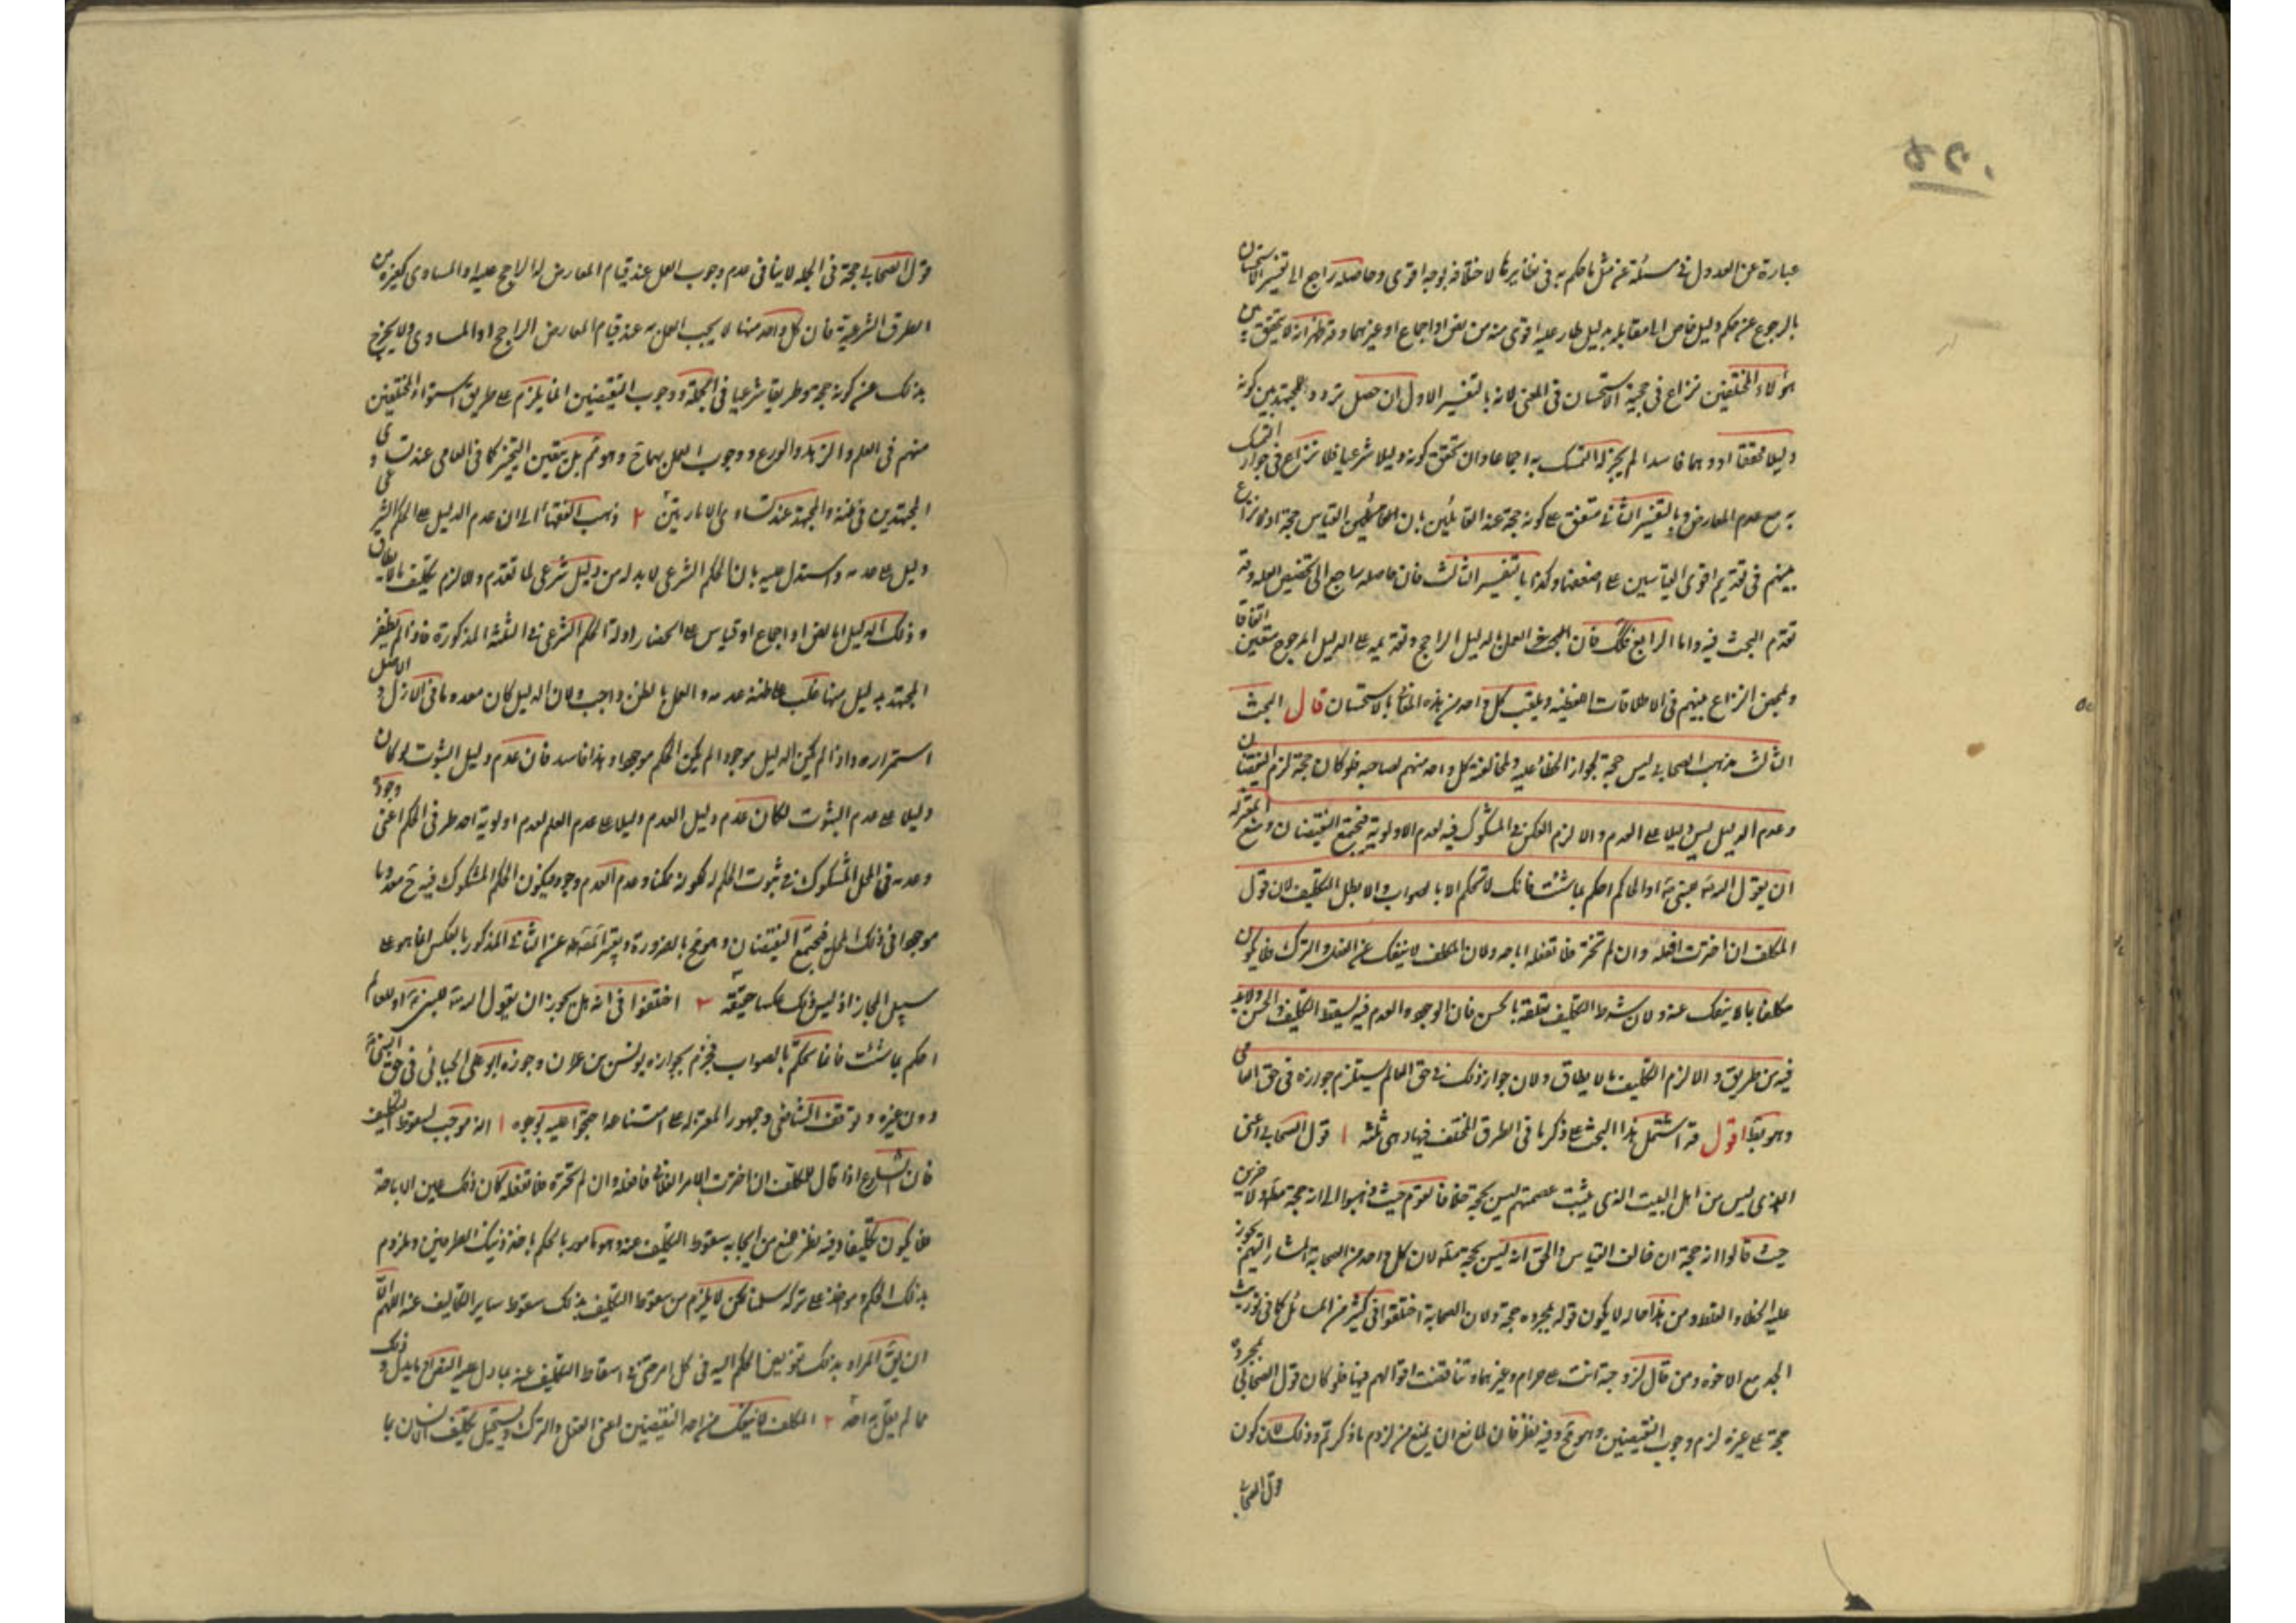 ۵۵۰
عبارة عن العدول فى مسئلة عن مثل ما حكم به فى نظايرها لا خلافه لوجه اقوى وحاصله راجع الى تفسير الاستحسان
بالرجوع عن حكم دليل خاص الى مقابله بدليل طار عليه اقوى منه من نص او اجماع او غيرهما وقد ظهر انه لا يتحقق بين
هؤلاء المختلفين نزاع فى حجية الاستحسان فى المعنى لانه بالتفسير الاول ان حصل تردد للمجتهد بين كونه
دليلا محققا او وهما فاسدا لم يجز له التمسك به اجماعا وان تحقق كونه دليلا شرعيا فلا نزاع فى جواز التمسك
به مع عدم المعارض وبالتفسير الثانى متفق على كونه حجة عند القائلين بان القياس حجة اذ لا نزاع
بينهم فى تقديم اقوى القياسين على اضعفهما وكذا بالتفسير الثالث فان حاصله راجع الى تخصيص العلة وقد
تقدم البحث فيه واما الرابع فكك فان العمل بالدليل الراجح وتقديمه على الدليل المرجوح متعين اتفاقا
ويمحض النزاع بينهم فى الاطلاقات اللفظية وتلقب كل واحد من هذه المعانى بالاستحسان قال البحث
الثالث مذهب الصحابى ليس حجة لجواز الخطاء عليه ولمخالفة كل واحد منهم لصاحبه فلو كان حجة لزم النقيضان
وعدم الدليل ليس دليلا على العدم والا لزم العكس فى المشكوك فيه لعدم الاولوية فيجتمع النقيضان ومنع المعتزلة
ان يقول الله تعالى لنبيه او الحاكم احكم بما شئت فانك لا تحكم الا بالصواب والا بطل التكليف لان قول
المكلف ان اخترت افعله وان لم تختر فلا تفعله اباحه ولان المكلف لا ينفك عن الفعل والترك فلا يكون
مكلفا بما لا ينفك عنه ولان شرط التكليف تعلقه بالحسن فان الوجود والعدم فيه يسقط التكليف والحسن ولا بد
فيه من طريق والا لزم التكليف بما لا يطاق ولان جواز ذلك فى حق العالم يستلزم جوازه فى حق العامى
وهو بط اقول قد اشتمل هذا البحث على ذكر ما فى الطرق المختلف فيها وهى ثلثة ا قول الصحابى اعنى
الذى ليس من اهل البيت الذى يثبت عصمتهم ليس بحجة خلافا لقوم حيث ذهبوا الى انه حجة مطلقا ولاخرين
حيث قالوا انه حجة ان خالف القياس والحق انه ليس بحجة مطلقا لان كل واحد من الصحابة المشار اليهم يجوز
عليه الخطاء والغلط ومن هذا حاله لا يكون قوله بمجرده حجة ولان الصحابة اختلفوا فى كثير من المسائل كما فى توريث
الجد مع الاخوة ومن قال لزوجته انت على حرام وغيرهما وتناقضت اقوالهم فيها فلو كان قول الصحابى بمجرده
حجة على غيره لزم وجوب النقيضين وهو مح وفيه نظر فان لمانع ان يمنع من لزوم ما ذكرتم وذلك لان كون
قول الصحابى
قول الصحابى حجة فى الجملة لا ينافى عدم وجوب العمل عند قيام المعارض له الراجح عليه او المساوى كغيره من
الطرق الشرعية فان كل واحد منها لا يجب العمل به عند قيام المعارض الراجح او المساوى ولا يخرج
بذلك عن كونه حجة وطريقا شرعيا فى الجملة ووجوب النقيضين انما يلزم على طريق استواء المختلفين
منهم فى العلم والزهد والورع ووجوب العمل بهما ح وهو ثم بل يتعين التخيير كما فى العامى عند تساوى
المجتهدين فى ظنه والمجتهد عند تساوى الامارتين ٢ ذهب الفقهاء الى ان عدم الدليل على الحكم الشرعى
دليل على عدمه واستدل عليه بان الحكم الشرعى لا بد له من دليل شرعى لما تقدم والا لزم تكليف ما لا يطاق
وذلك الدليل اما نص او اجماع او قياس على انحصار ادلة الحكم الشرعى فى الثلثة المذكورة فاذا لم يظفر
المجتهد بدليل منها غلب على ظنه عدمه والعمل بالظن واجب ولان الدليل كان معدوما فى الازل والاصل
استمراره واذا لم يكن الدليل موجودا لم يكن الحكم موجودا وهذا فاسد فان عدم دليل الثبوت لو كان
دليلا على عدم الثبوت لكان عدم دليل العدم دليلا على عدم العدم لعدم اولوية احد طرفى الحكم اعنى وجوده
وعدمه فى المحل المشكوك فى ثبوت الحكم له لكونه ممكنا وعدم العدم وجود فيكون الحكم المشكوك فيه ح معدوما
موجودا فى ذلك المحل فيجتمع النقيضان وهو مح بالضرورة وتعبير المص عن الثانى المذكور بالعكس انما هو على
سبيل المجاز اذ ليس ذلك عكسا حقيقة ٣ اختلفوا فى انه هل يجوز ان يقول الله تعالى للنبى او للعالم
احكم بما شئت فانك لا تحكم الا بالصواب فجزم بجوازه يونس بن عمران وجوزه ابو على الجبائى فى حق النبى
دون غيره وتوقف الشافعى وجمهور المعتزلة على امتناعه احتجوا عليه بوجوه ا انه موجب لسقوط التكليف
فان الشارع اذا قال للمكلف ان اخترت الامر الفلانى فافعله وان لم تختره فلا تفعله كان ذلك عين الاباحة
فلا يكون تكليفا وفيه نظر نمنع من ايجابه سقوط التكليف عنه وهو مامور بالحكم باحد ذينك الطرفين وملزوم
بذلك الحكم ومؤاخذ على تركه سلمنا لكن لا يلزم من سقوط التكليف بذلك سقوط ساير التكاليف عنه اللهم الا
ان يق المراد بذلك تفويض الحكم اليه فى كل امر حتى فى اسقاط التكليف عنه بما دل عليه النص وذلك
مما لم يقل به احد ٢ المكلف لا ينفك من احد النقيضين اعنى الفعل والترك ويستحيل تكليف الانسان بما